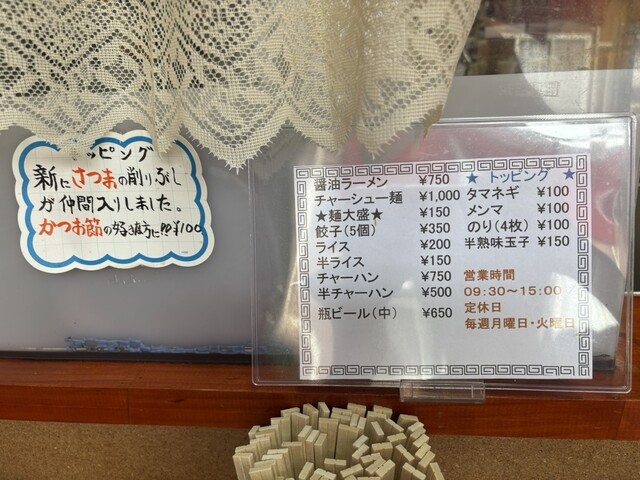 ッピング
新にさつまの削りぶし
が仲間入りしました。
かつお節の好きな方に!!¥100
醤油ラーメン ¥750
チャーシュー麺 ¥1,000
★麺大盛★ ¥150
餃子(5個) ¥350
ライス ¥200
半ライス ¥150
チャーハン ¥750
半チャーハン ¥500
瓶ビール(中) ¥650
★ トッピング ★
タマネギ ¥100
メンマ ¥100
のり(4枚) ¥100
半熟味玉子 ¥150
営業時間
09:30～15:00
定休日
毎週月曜日・火曜日